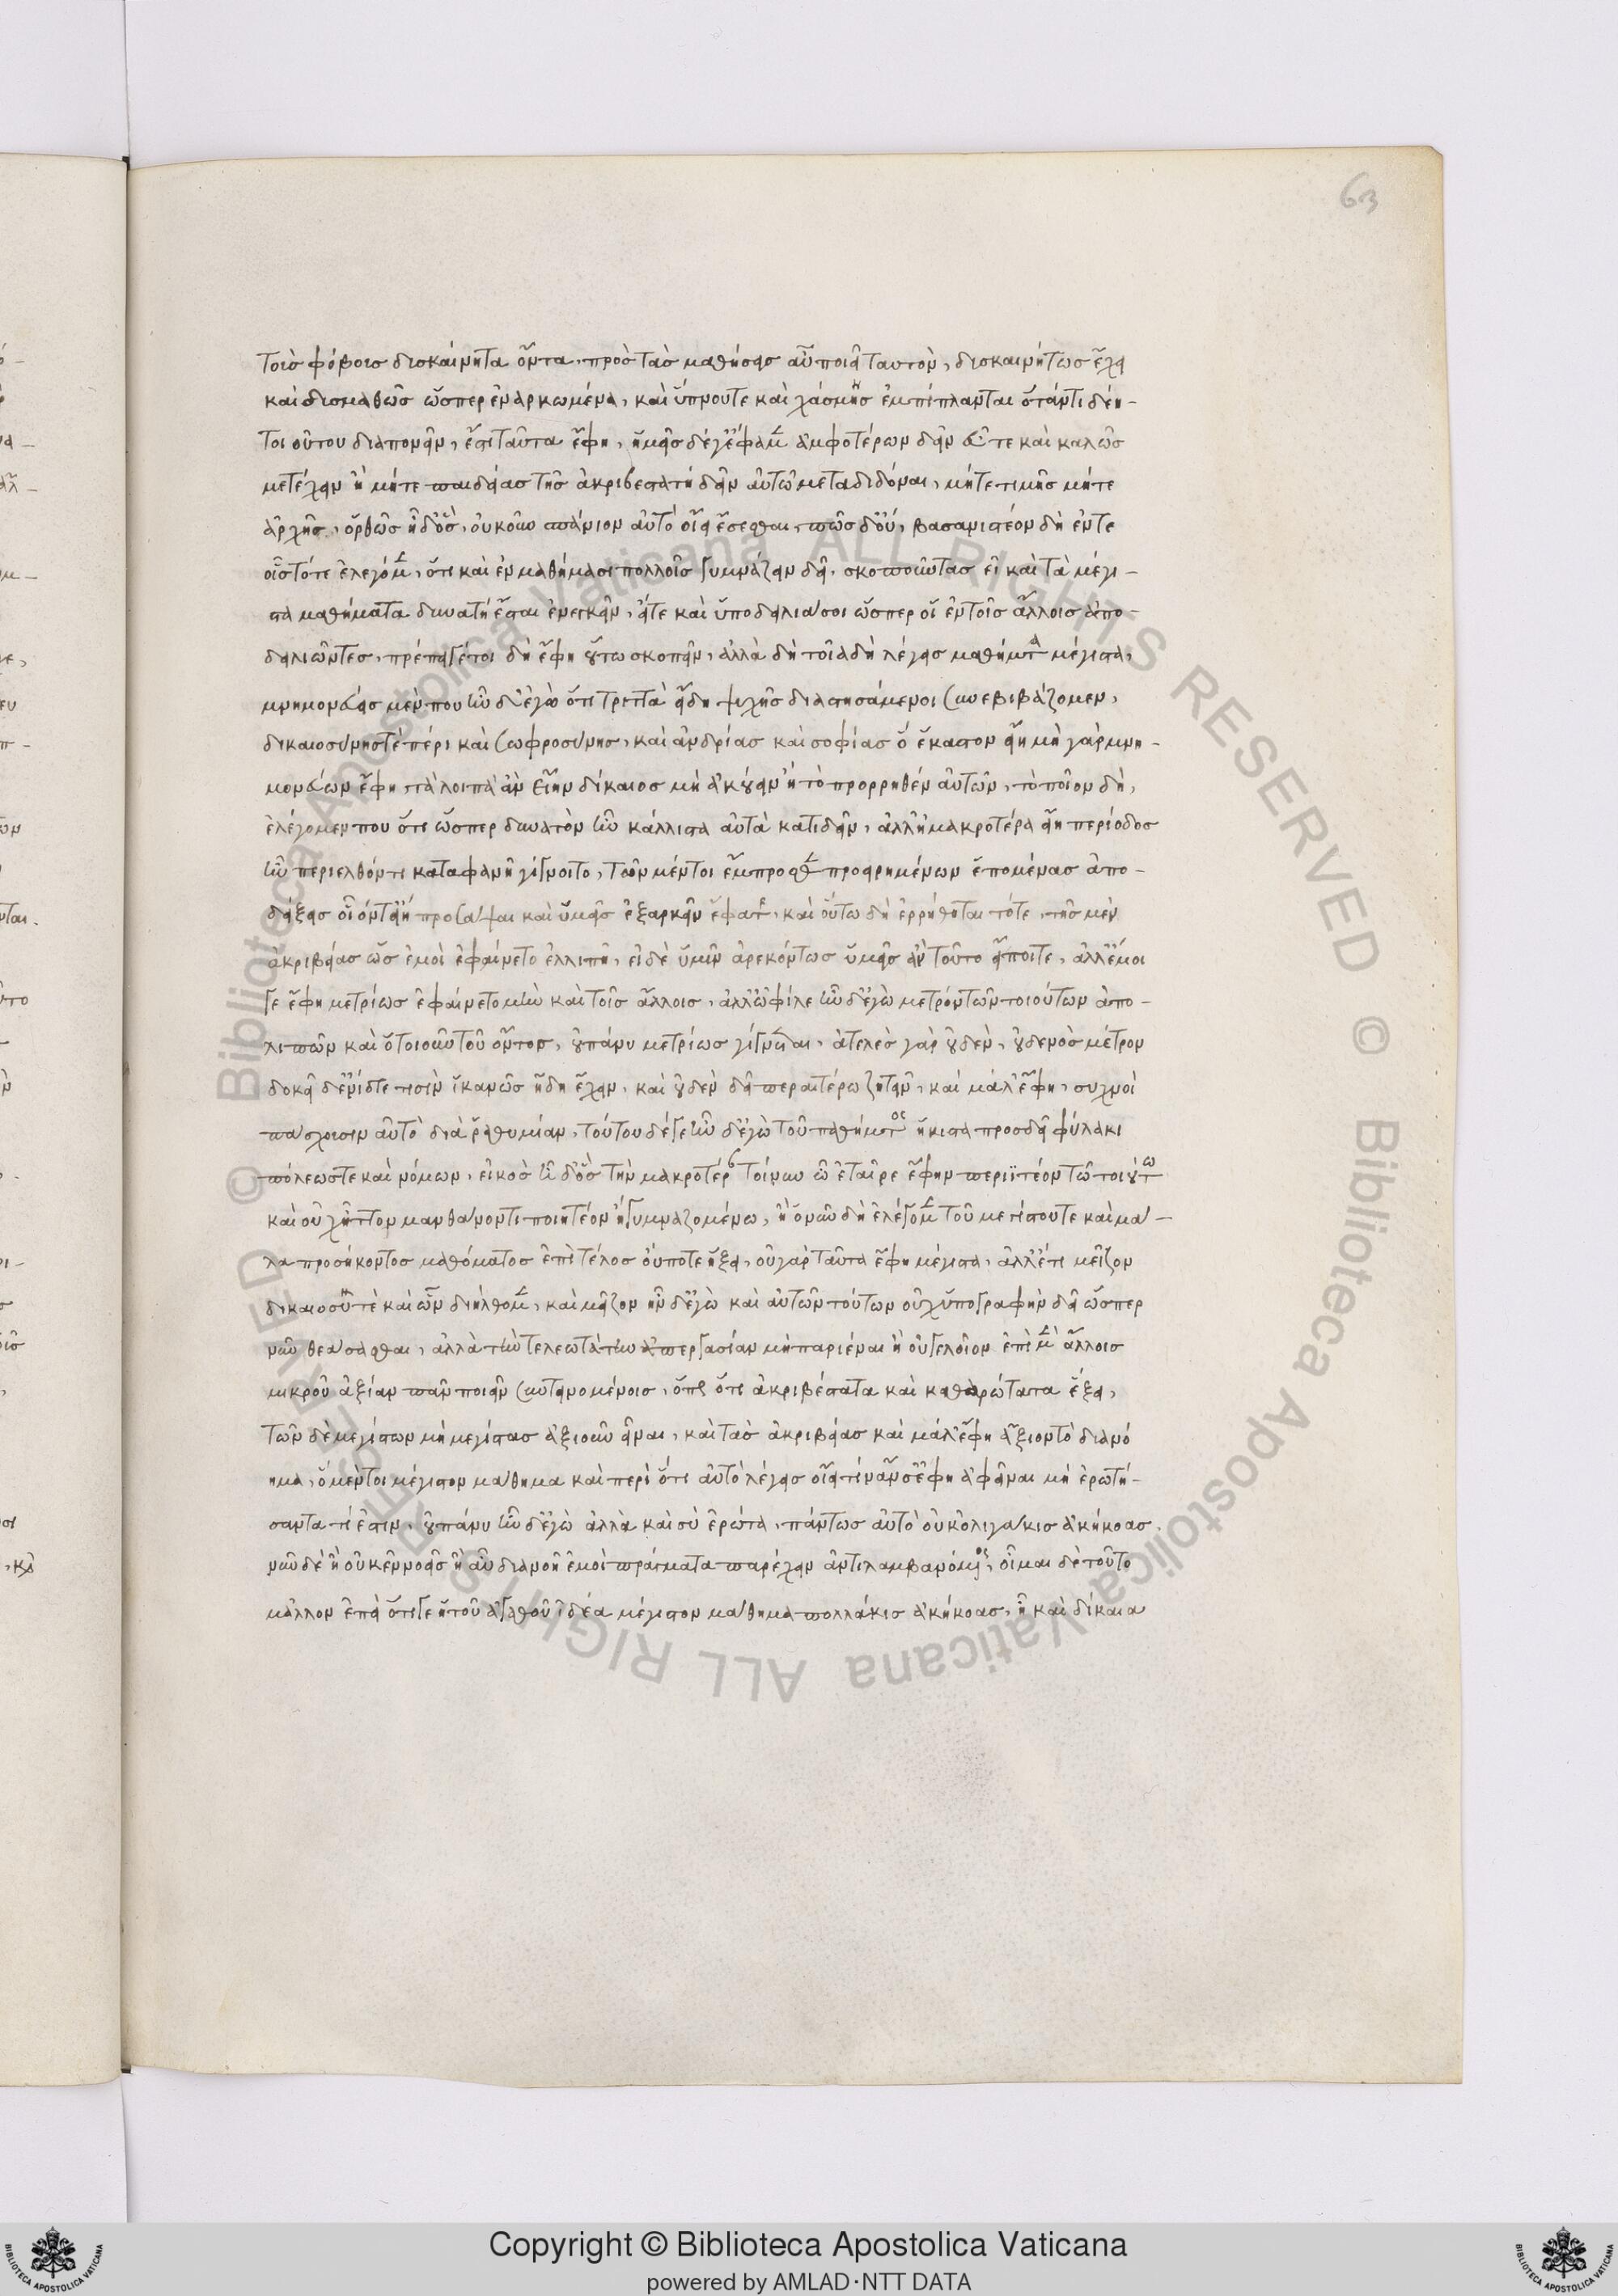 63
τοὶσ φόβοισ δισκαίνητα ὄντα, πρὸσ τὰσ μαθήσεισ αὖ ποιεῖ ταυτὸν, δισκαινήτωσ ἔχει
καὶ δισμαθῶσ ὥσπερ ἐναρκωμένα, καὶ ὕπνουτε καὶ χάσμησ ἐμπίπλανται ὅτάντι δέη-
τοι οὕτου διαπονεῖν, ἔστι ταῦτα ἔφη, ἡμεῖσ δέγ' ἔφαμεν ἀμφοτέρων δεῖν εὖτε καὶ καλῶσ
μετέχειν ἢ μήτε παιδείασ τῆσ ἀκριβεστάτη δεῖν αὐτῶ μεταδιδόναι, μήτε τιμῆσ μήτε
ἀρχῆσ, ὀρθῶσ ἦ δ' ὃσ, οὐκοῦν σπάνιον αὐτὸ οἴει ἔσεσθαι, πῶσ δ' οὔ, βασανιστέον δὴ ἐντε
οἷσ τότε ἐλεγόμεν, ὅτι καὶ ἐν μαθήμασι πολλοῖσ γυμνάζειν δεῖ, σκοποῦντασ εἰ καὶ τὰ μέγι-
στα μαθήματα δυνατὴ ἔσται ἐνεγκεῖν, εἴτε καὶ ὑποδειλιάσοι ὥσπερ οἵ ἐν τοῖσ ἄλλοισ ἀπο-
δειλιῶντεσ, πρέπει γέ τοι δὴ ἔφη οὕτω σκοπεῖν, ἀλλὰ δὴ τοῖα δὴ λέγεισ μαθήματα μέγιστα,
μνημονεύεισ μέν που ἦν δ' ἐγὼ ὅτι τριττὰ εἴδη ψυχῆσ διαστησάμενοι συνεβιβάζομεν,
δικαιοσύνησ τὲ πέρι καὶ σωφροσύνησ, καὶ ἀνδρίασ καὶ σοφίασ ὅ ἕκαστον εἴη μὴ γὰρ μνη-
μονεύων ἔφη τὰ λοιπὰ ἂν εἴην δίκαιοσ μὴ ἀκούειν ἢ τὸ προρρηθὲν αὐτῶν, τὸ ποῖον δὴ,
ἐλέγομεν που ὅτι ὥσπερ δυνατὸν ἦν κάλλιστα αὐτὰ κατιδεῖν, ἀλλη μακροτέρα εἴη περίοδοσ
ἣν περιελθόντι καταφανῆ γίγνοιτο, τῶν μέντοι ἔμπροσθεν προειρημένων ἑπομένασ ἀπο-
δείξεισ οἷόντ' εἴη προσάψαι καὶ ὑμεῖσ ἐξαρκεῖν ἔφατε, καὶ οὕτω δὴ ἐρρήθηται τότε, τῆσ μὲν
ἀκριβείασ ὡσ ἐμοὶ ἐφαίνετο ἐλλιπῆ, εἰ δὲ ὑμῖν ἀρεκόντωσ ὑμεῖσ ἂν τοῦτο εἴποιτε, ἀλλ' ἔμοι
γε ἔφη μετρίωσ ἐφαίνετο μὴν καὶ τοῖσ ἄλλοισ, ἀλλ' ὦ φίλε ἦν δ' ἐγὼ μετρόν τῶν τοιούτων ἀπο-
λιπῶν καὶ ὅτοιοῦν τοῦ ὄντοσ, οὐ πάνυ μετρίωσ γίγνεται, ἀτελὲσ γὰρ οὐδὲν, οὐδενὸσ μέτρον
δοκεῖ δ' ἐνίοτε τισὶν ἱκανῶσ ἤδη ἔχειν, καὶ οὐδὲν δεῖ περαιτέρω ζητεῖν, καὶ μάλ' ἔφη, συχνοὶ
πάσχουσιν αὐτὸ διὰ ῥαθυμίαν, τούτου δέ γε ἦν δ' ἐγὼ τοῦ παθήματος ἥκιστα προσδεῖ φύλακι
πόλεώστε καὶ νόμων, εἰκὸσ ἦ δ' ὃσ τὴν μακροτέραν τοίνυν ὦ ἑταῖρε ἔφην περιϊτέον τῶ τοιούτω
καὶ οὐχ ἧττον μανθάνοντι ποιητέον ἢ γυμναζομένω, ἢ ὃ νῦν δὴ ἐλέγομεν τοῦ μεγίστουτε καὶ μά-
λα προσήκοντοσ μαθόματοσ ἐπὶ τέλοσ οὔποτε ἥξει, οὐ γὰρ ταῦτα ἔφη μέγιστα, ἀλλ' ἔτι μεῖζον
δικαιοσύνησ τὲ καὶ ὧν διήλθομεν, καὶ μεῖζον ἦν δ' ἐγὼ καὶ αὐτῶν τούτων οὐχ ὑπογραφὴν δεῖ ὥσπερ
νῦν θεάσασθαι, ἀλλὰ τὴν τελεωτάτην ἀπεργασίαν μὴ παριέναι ἢ οὐ γελοῖον ἐπὶ μὲν ἄλλοισ
μικροῦ ἀξίαν πᾶν ποιεῖν συντεινομένοισ, ὅπωσ ὅτι ἀκριβέστατα καὶ καθαρώτατα ἕξει,
τῶν δὲ μεγίστων μὴ μεγίστασ ἀξιοῦν εἶναι, καὶ τὰσ ἀκριβείασ καὶ μάλ' ἔφη ἄξιον τὸ διανό
ημα, ὃ μέντοι μέγιστον μάθημα καὶ περὶ ὅτι αὐτὸ λέγεισ οἴει τίν' ἄν σε ἔφη ἀφεῖναι μὴ ἐρωτή-
σαντα τί ἐστιν, οὐ πάνυ ἦν δ' ἐγὼ ἀλλὰ καὶ σὺ ἐρώτα, πάντωσ αὐτὸ οὐκ ὀλιγάκισ ἀκήκοασ,
νῦν δὲ ἢ οὐκ ἐννοεῖσ ἢ αὖ διανοῆ ἐμοὶ πράγματα παρέχειν ἀντιλαμβανόμενος, οἶμαι δὲ τοῦτο
μᾶλλον ἐπεὶ ὅτι γε ἡ τοῦ ἀγαθοῦ ἰδέα μέγιστον μάθημα πολλάκισ ἀκήκοασ, ἧ καὶ δίκαια
Copyright © Biblioteca Apostolica Vaticana
powered by AMLAD·NTT DATA